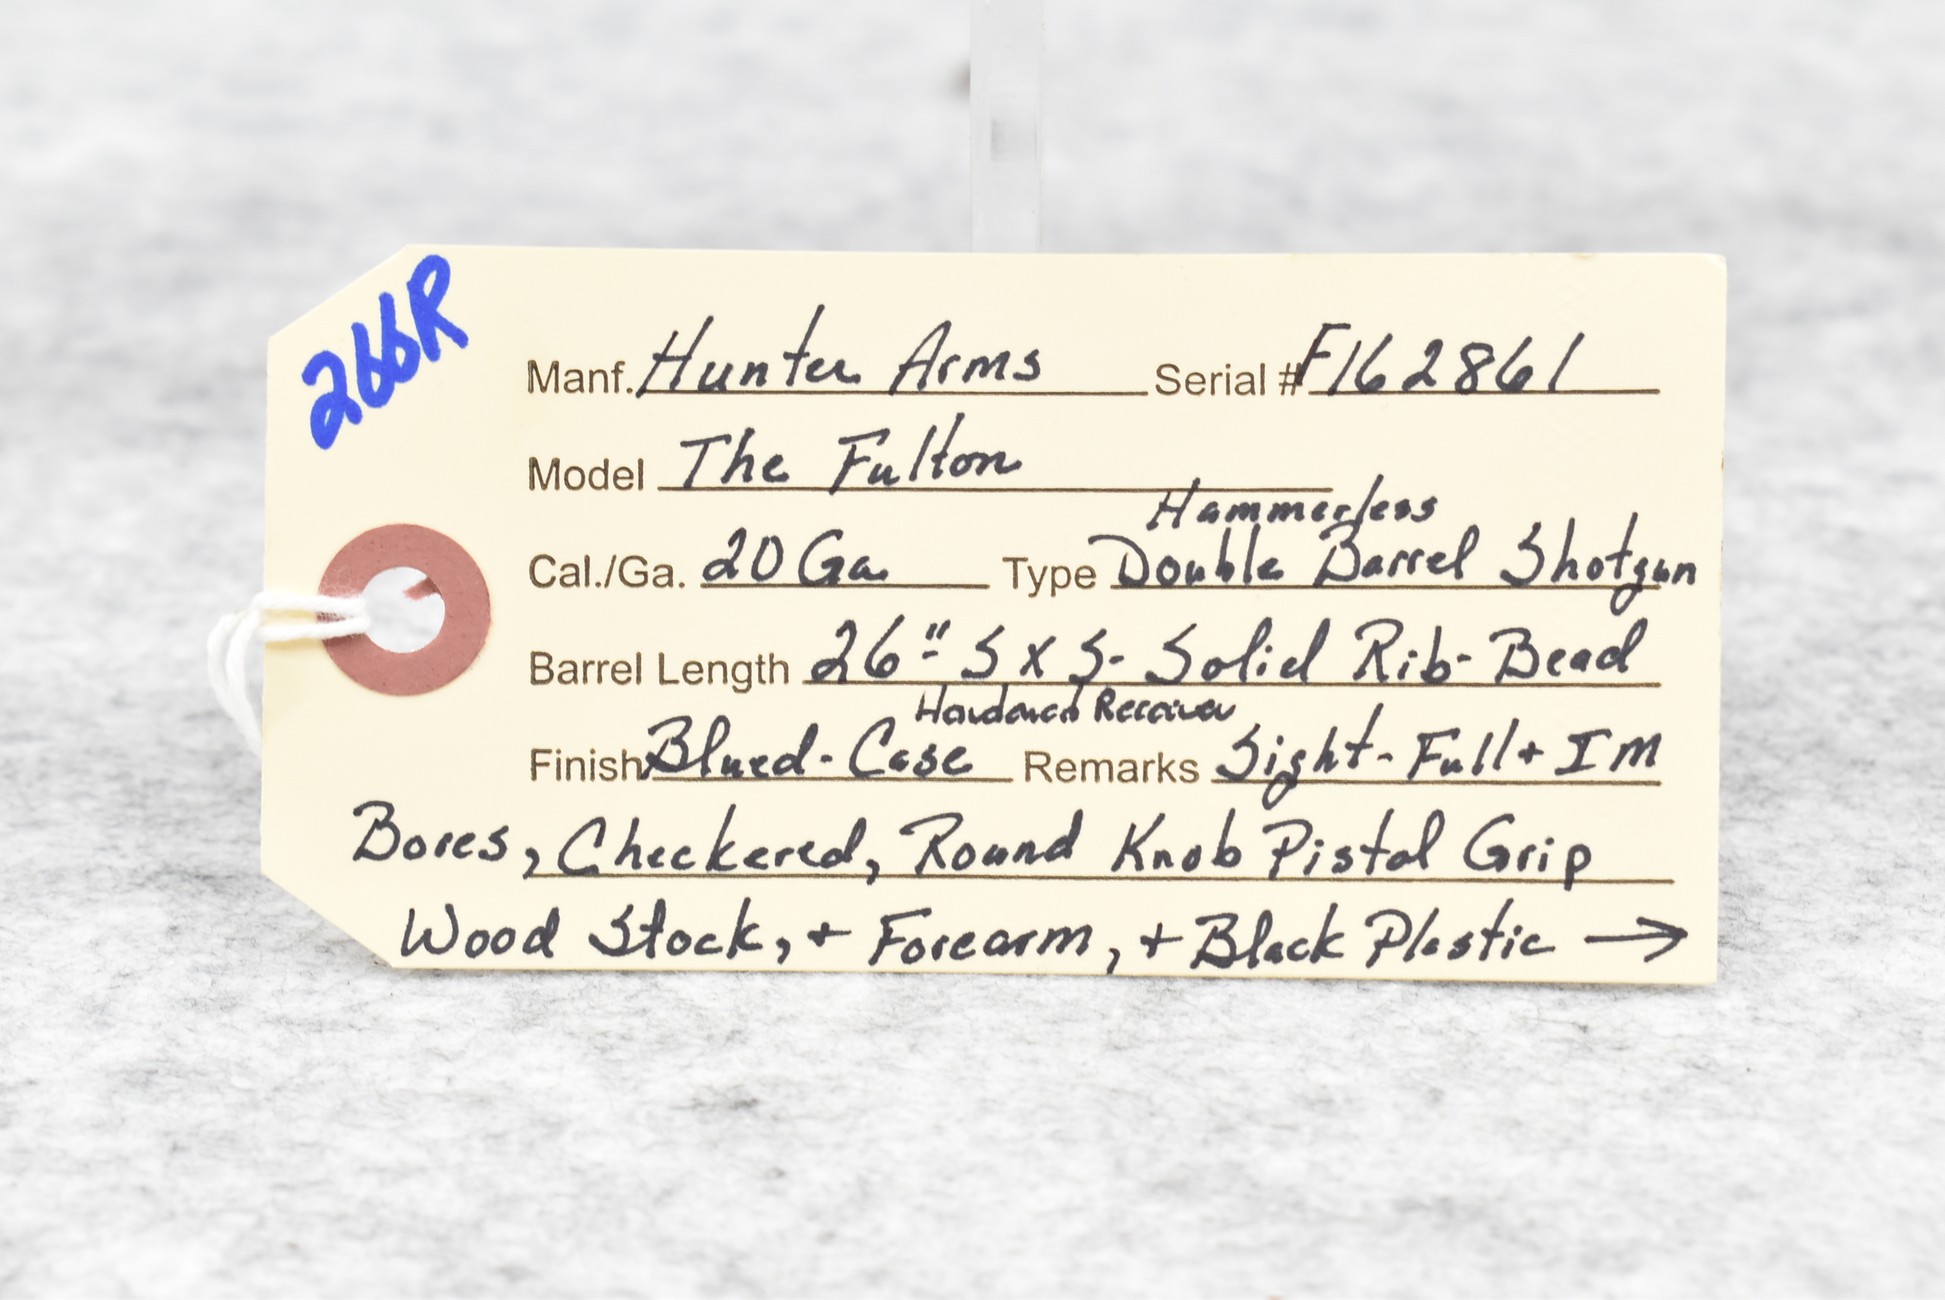 266R
Manf. Hunter Arms Serial # F162861
Model The Fulton
Hammerless
Cal./Ga. 20 Ga. Type Double Barrel Shotgun
Barrel Length 26"- S x S- Solid Rib- Bead
Hardened Receiver
Finish Blued- Case Remarks Sight- Full + IM
Bores, Checkered, Round Knob Pistol Grip
Wood Stock, + Forearm, + Black Plastic →